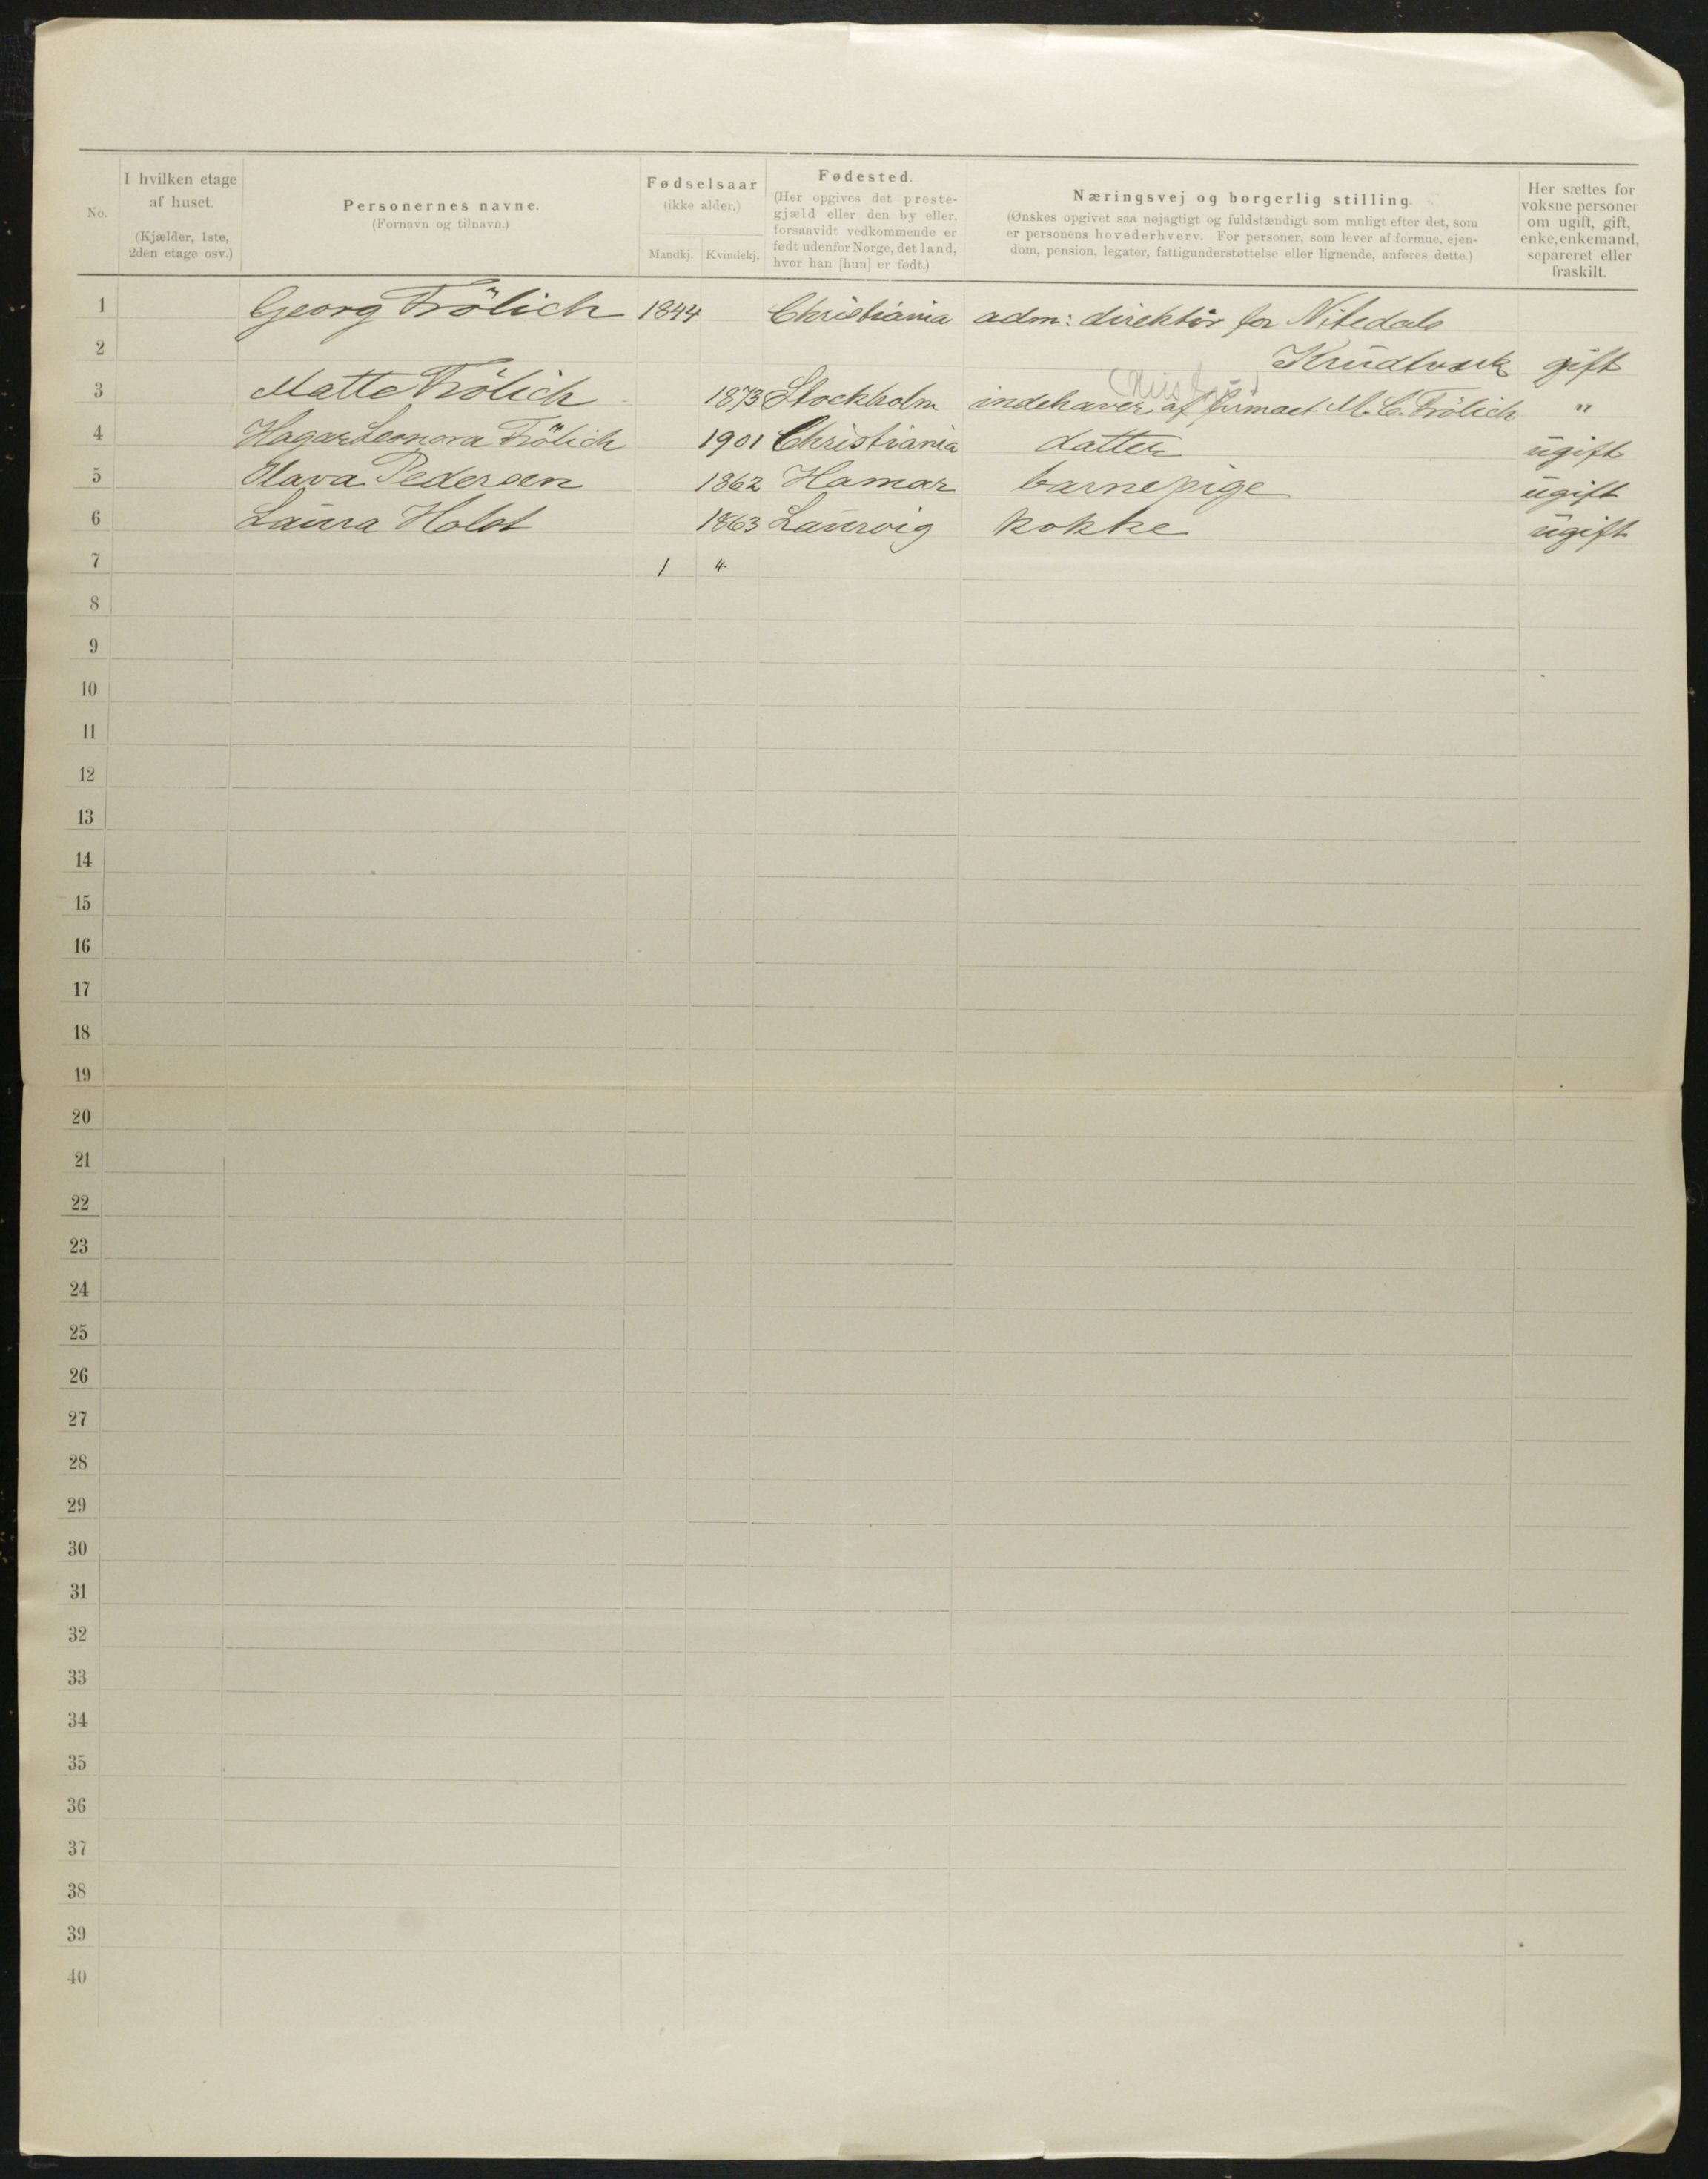 No.
I hvilken etage
af huset.
(Kjælder, 1ste,
2den etage osv.)
Personernes navne.
(Fornavn og tilnavn.)
Fødselsaar
(ikke alder.)
Mandkj. Kvindekj.
Fødested.
(Her opgives det preste-
gjæld eller den by eller,
forsaavidt vedkommende er
født udenfor Norge, det land,
hvor han [hun] er født.)
Næringsvej og borgerlig stilling.
(Ønskes opgivet saa nøjagtigt og fuldstændigt som muligt efter det, som
er personens hovederhverv. For personer, som lever af formue, ejen-
dom, pension, legater, fattigunderstøttelse eller lignende, anføres dette.)
Her sættes for
voksne personer
om ugift, gift,
enke, enkemand,
separeret eller
fraskilt.
1 Georg Frölich 1844 Christiania adm: direktör for Nitedals
2 Krudtværk gift
3 Matte Frölich 1873 Stockholm indehaver af firmaet M. C. Frölich "
4 Hagar Leonora Frölich 1901 Christiania datter ugift
5 Olava Pedersen 1862 Hamar barnepige ugift
6 Laura Holst 1863 Laurvig kokke ugift
7 1 4
8
9
10
11
12
13
14
15
16
17
18
19
20
21
22
23
24
25
26
27
28
29
30
31
32
33
34
35
36
37
38
39
40